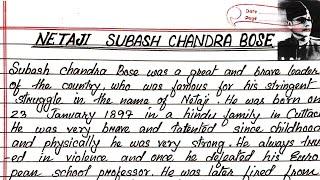 Date
Page
NETAJI SUBASH CHANDRA BOSE
Subash chandra Bose was a great and brave leader
of the country who was famous for his stringent
struggle in the name of Netaji. He was born on
23 January 1897 in a hindu family in Cuttac
He was very brave and tatented since childhood
and physically he was very strong. He always trus
-ed in violence and once he defeated his Euro
pean school professor. He was later fired from